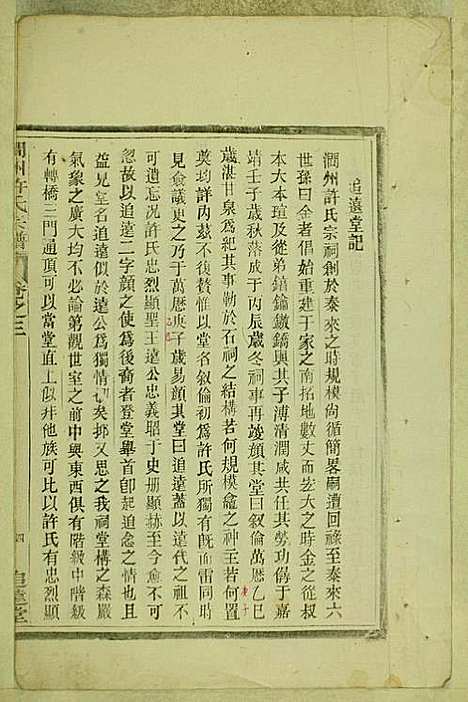 追遠堂記
潤州許氏宗祠創於泰來之時規模尙循簡畧嗣遭回祿至泰來六
世孫曰金者倡始重建于家之南拓地數丈而宏大之時金之從叔
本大本瑄及從弟錯鑰鐓鐈與其子溥清潤咸共任其勞功僝于嘉
靖壬子歲秋落成于丙辰歲冬祠事再竣顏其堂曰叙倫萬厯乙巳
歲湛甘泉爲紀其事勒於石祠之結構若何規模龕之神主若何置
奠均詳內茲不復贅惟以堂名叙倫初爲許氏所獨有旣而雷同時
見僉議更之乃于萬厯庚子歲易顏其堂曰追遠蓋以遠代之祖不
可遺忘况許氏忠烈顯聖王遠公忠義昭于史册顯赫至今愈不可
忽故以追遠二字顏之使爲後裔者登堂舉首卽起追念之情也且
益見堂名追遠似於遠公爲獨情切矣抑又思之我祠堂構之森嚴
氣象之廣大均不必論第觀世室之前中與東西俱有階級中階級
有轉橋三門通頂可以當堂直上似非他族可比以許氏有忠烈顯
潤州許氏宗譜
卷之三
四
追遠堂